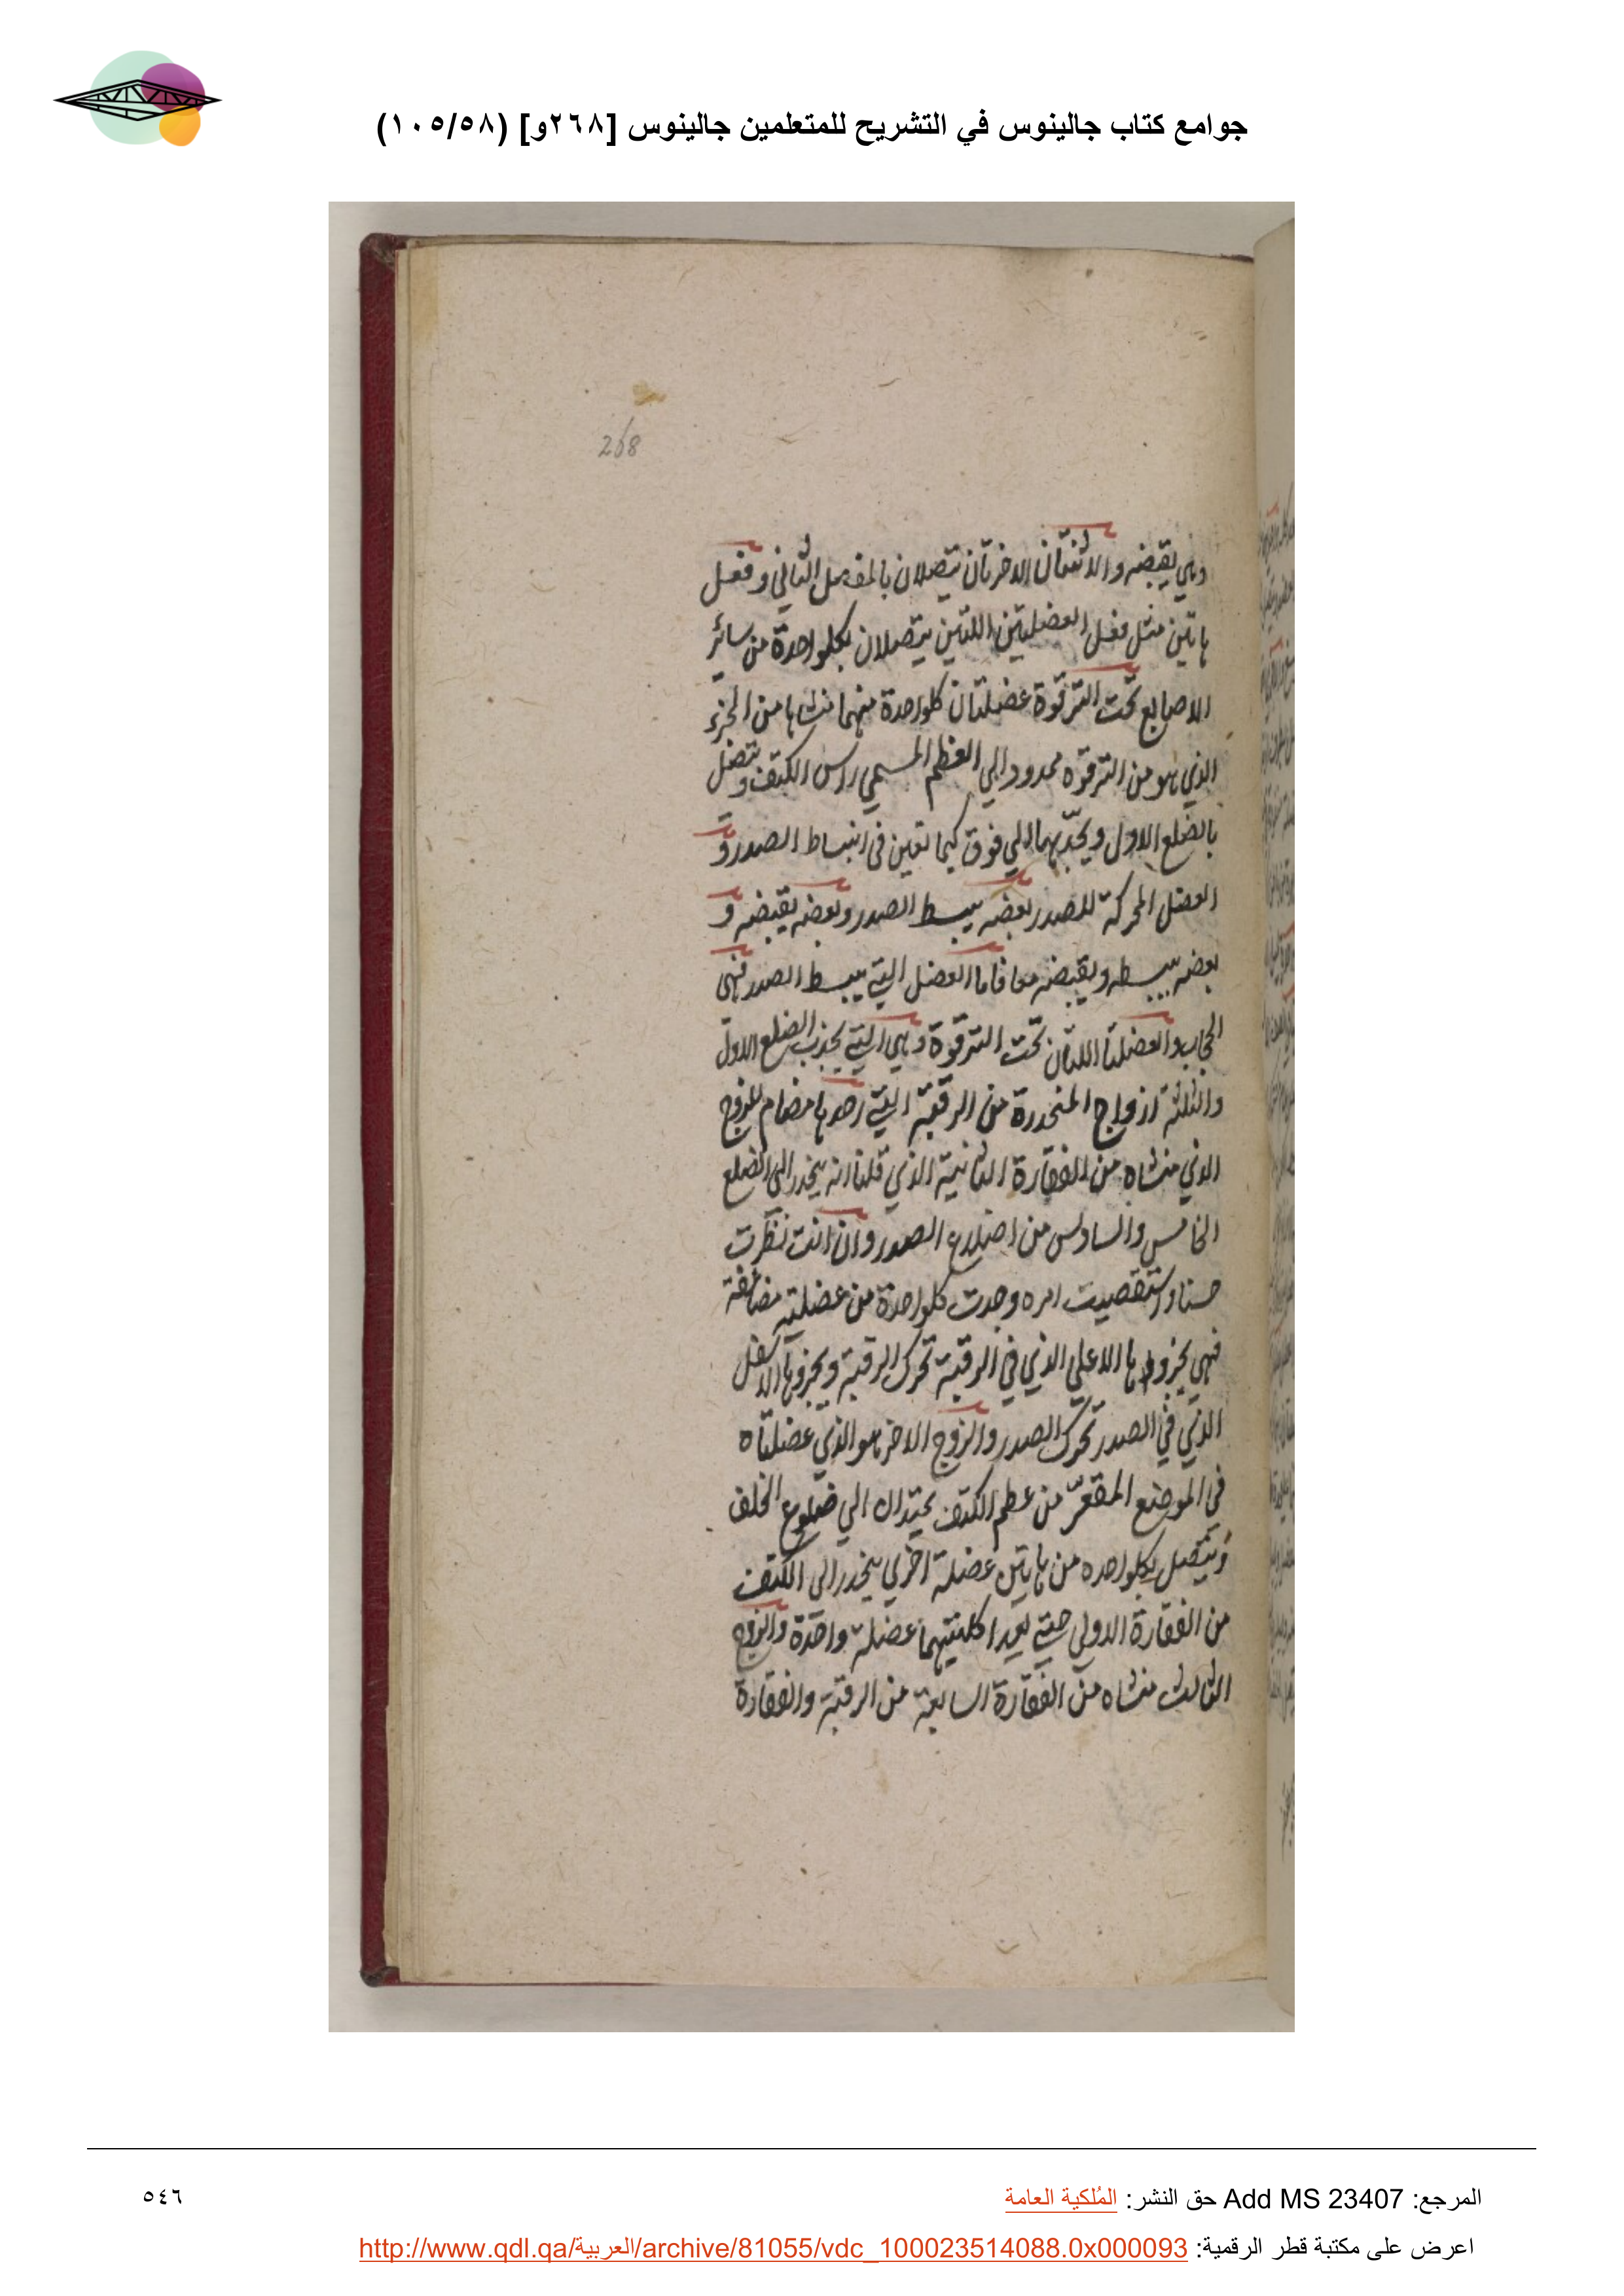 جوامع كتاب جالينوس في التشريح للمتعلمين جالينوس [٢٦٨و] (١٠٥/٥٨)
268
وهي يقبضه والاثنتان الاخرتان تتصلان بالمفصل الثاني وفعل
هاتين مثل فعل العضلتين اللتين يتصلان بكلواحدة من سائر
الاصابع تحت الترقوة عضلتان كلواحدة منهما منشاها من الجزء
الذي هو من الترقوه ممدود الي العظم المسمي راس الكتف وتتصل
بالضلع الاول ويجذبها الي فوق كيما تعين في انبساط الصدر و
العضل المحركة للصدر بعضه يبسط الصدر وبعضه يقبضه و
بعضه يبسطه ويقبضه معا فاما العضل التي يبسط الصدر فهي
الحجاب والعضلتا اللتان تحت الترقوة وهي التي يجذب الضلع الاول
والثلثة ازواج المنحدرة من الرقبة التي احدها مضام للزوج
الذي منشاه من الفقارة الثانية الذي قلنا انه ينحدر الى الضلع
الخامس والسادس من اضلاع الصدر وان انت نظرت
حسنا واستقصيت امره وجدت كلواحدة من عضلتيه مضاعفة
فهي بجزوها الاعلي الذي في الرقبة تحرك الرقبة وبجزوها الاسفل
الذي في الصدر تحرك الصدر والزوج الاخر هو الذي عضلتاه
في الموضع المقعر من عظم الكتف الي ضلوع الخلف
ويتصل بكلواحده من هاتين عضلة اخري ينحدر الى الكتف
من الفقارة الاولي حتي كلتيهما عضلة واحدة والزوج
الثالث منشاه من الفقارة السابعة من الرقبة والفقارة
المرجع: Add MS 23407 حق النشر: المُلكية العامة
٥٤٦
اعرض على مكتبة قطر الرقمية: http://www.qdl.qa/العربية/archive/81055/vdc_100023514088.0x000093